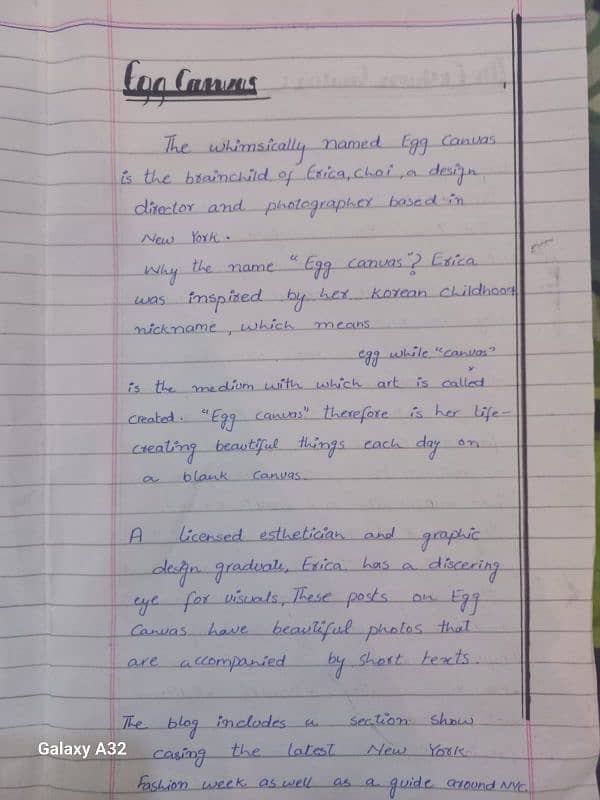 Egg Canvas
The whimsically named Egg Canvas
is the brainchild of Erica, Choi, a design
director and photographer based in
New York.
Why the name "Egg canvas"? Erica
was inspired by her Korean childhood
nickname, which means
egg while "canvas"
is the medium with which art is called
created. "Egg canvas" therefore is her life-
creating beautiful things each day on
a blank canvas.
A licensed esthetician and graphic
design graduate, Erica has a discering
eye for visuals, These posts on Egg
Canvas have beautiful photos that
are accompanied by short texts.
The blog includes a section show
casing the latest New York
Fashion week as well as a guide around NYC
Galaxy A32